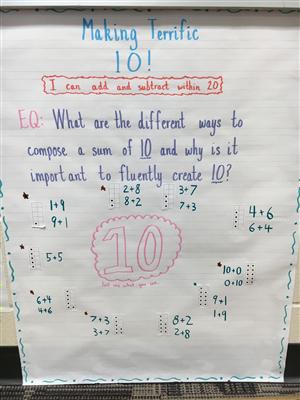 Making Terrific
10!
I can add and subtract within 20
EQ: What are the different ways to
compose a sum of 10 and why is it
important to fluently create 10?
1+9
9+1
2+8
8+2
3+7
7+3
4+6
6+4
5+5
10
tell me what you see
10+0
0+10
6+4
4+6
9+1
1+9
7+3
3+7
8+2
2+8